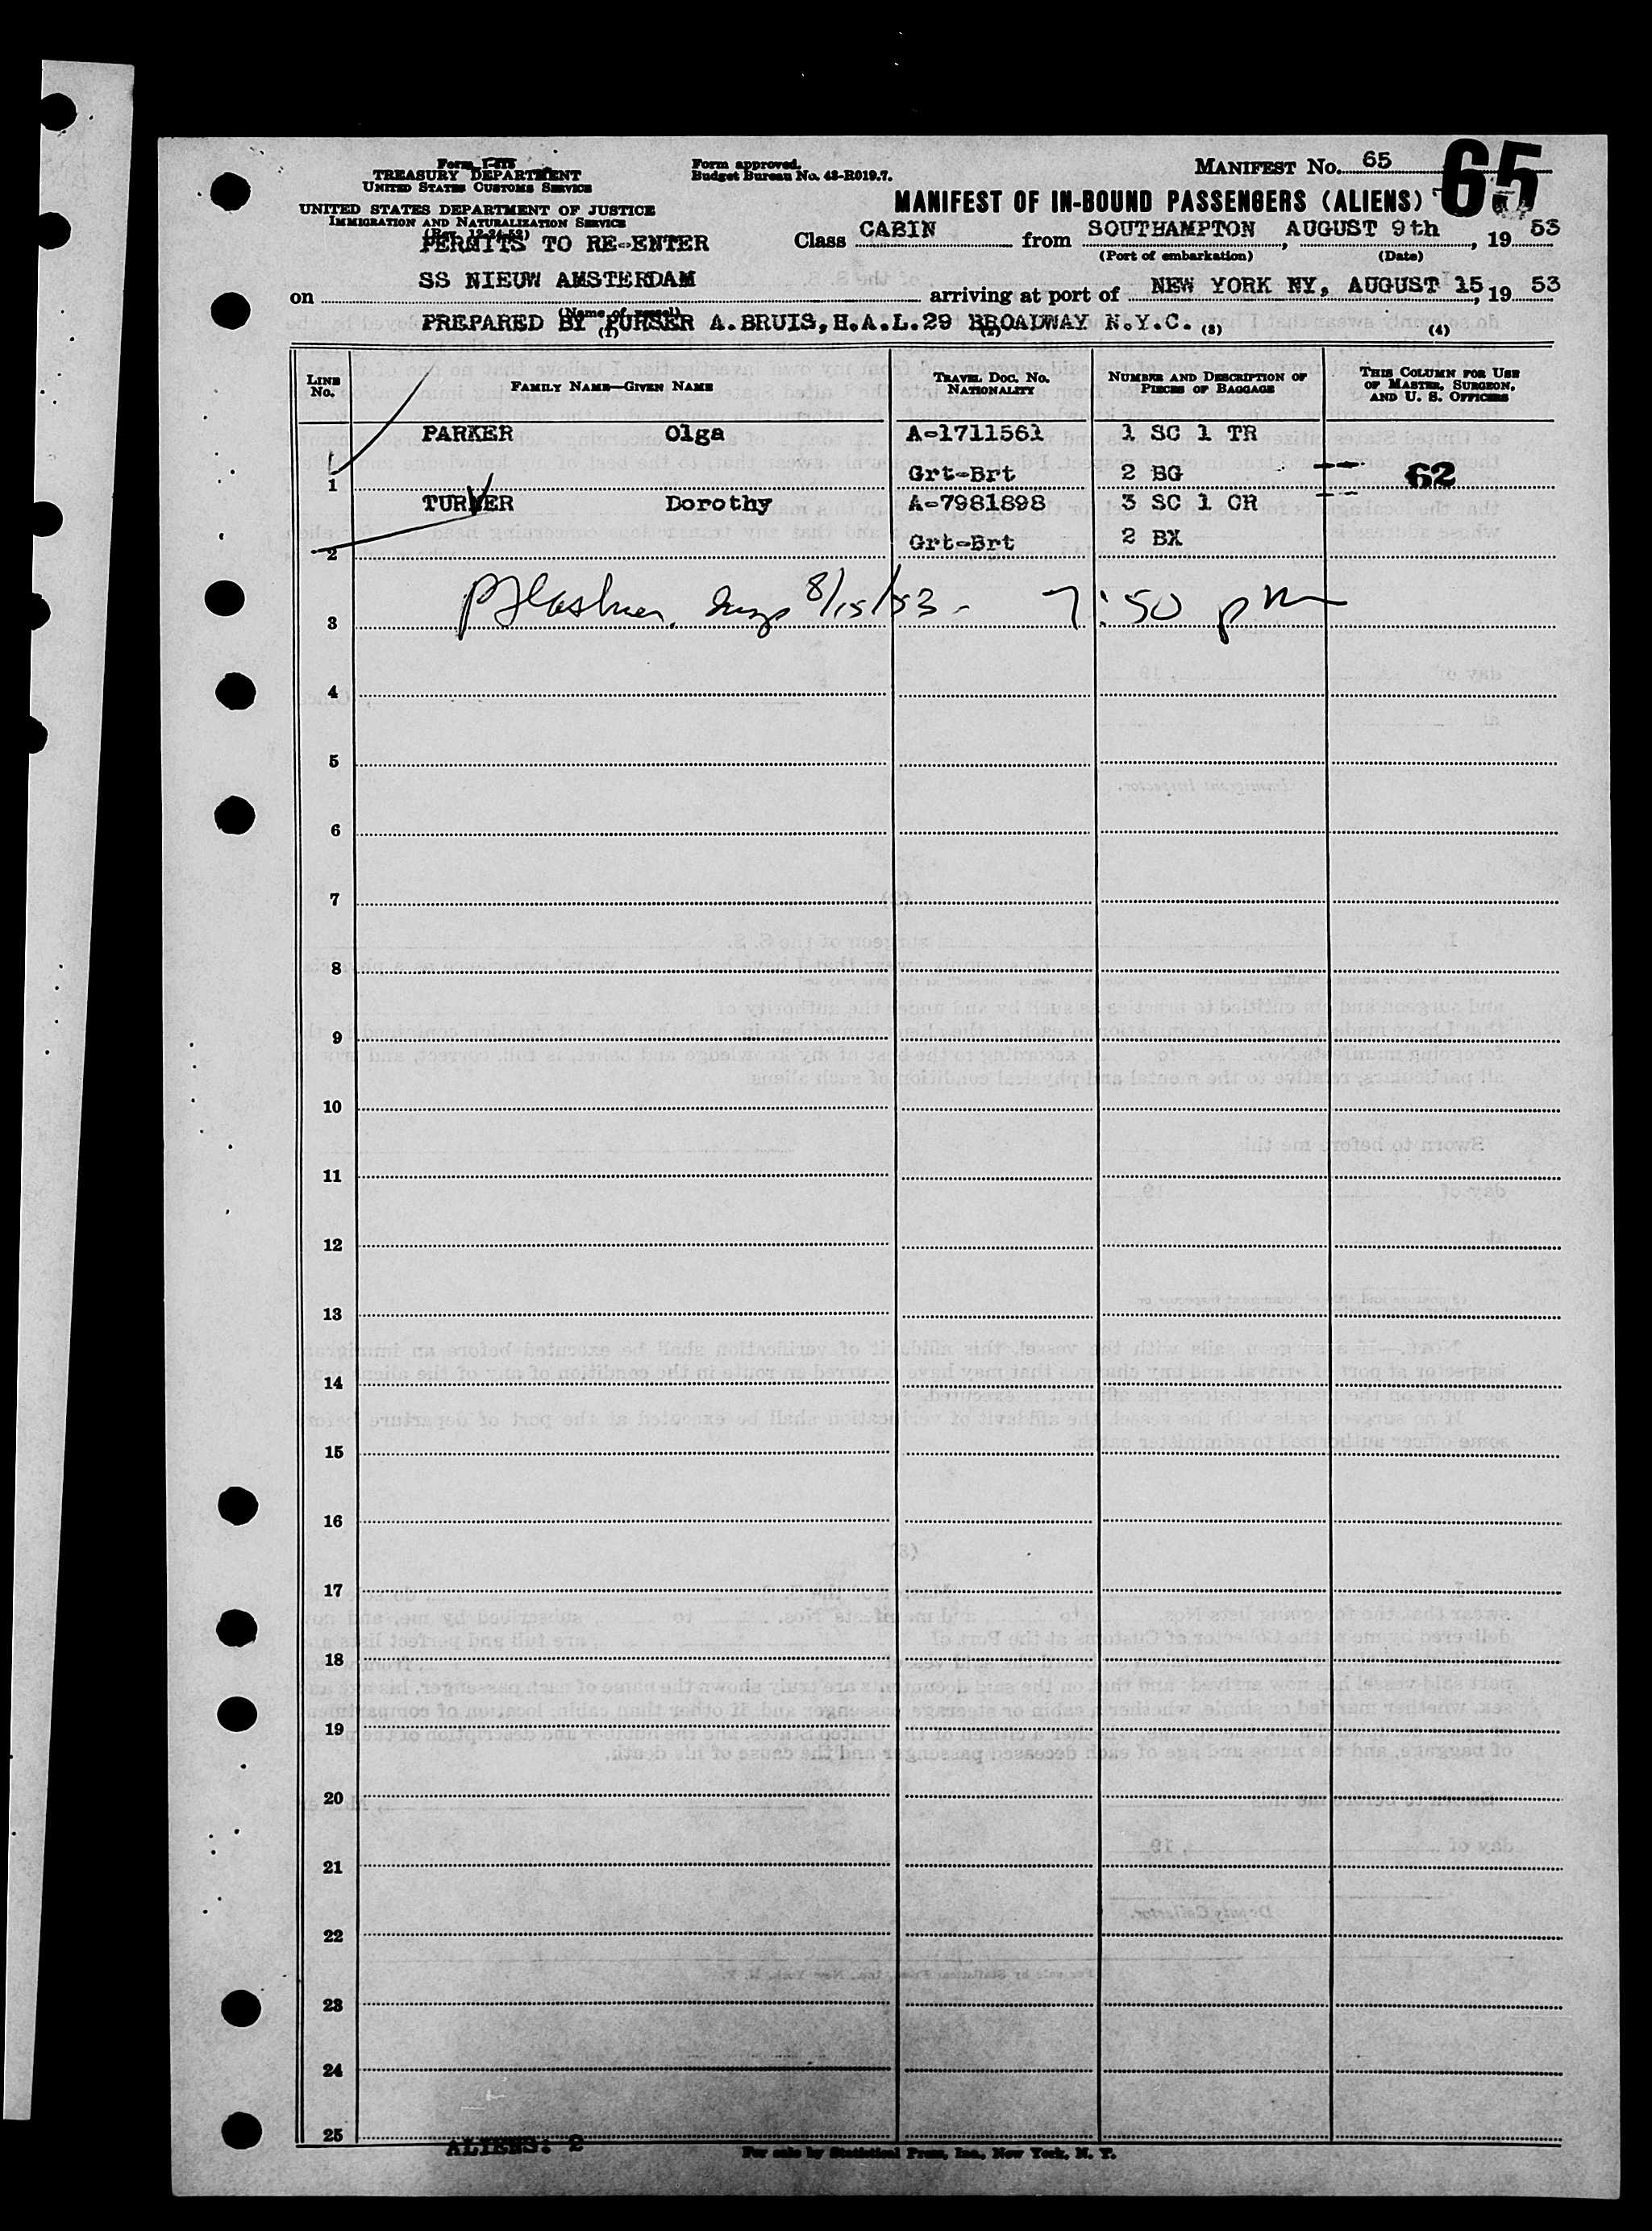 Form I-418
TREASURY DEPARTMENT
UNITED STATES CUSTOMS SERVICE
UNITED STATES DEPARTMENT OF JUSTICE
IMMIGRATION AND NATURALIZATION SERVICE
(Rev. 12-24-52)
PERMITS TO RE-ENTER
Form approved.
Budget Bureau No. 43-R019.7.
MANIFEST No. 65
65
MANIFEST OF IN-BOUND PASSENGERS (ALIENS)
Class CABIN from SOUTHAMPTON, AUGUST 9th, 19 53
(Port of embarkation) (Date)
on SS NIEUW AMSTERDAM arriving at port of NEW YORK NY, AUGUST 15, 19 53
(Name of vessel)
PREPARED BY PURSER A.BRUIS, H.A.L. 29 BROADWAY N.Y.C.
(1) (2) (3) (4)
LINE No. FAMILY NAME—GIVEN NAME TRAVEL DOC. No. NATIONALITY NUMBER AND DESCRIPTION OF PIECES OF BAGGAGE THIS COLUMN FOR USE OF MASTER, SURGEON, AND U. S. OFFICERS
PARKER Olga A-1711561 1 SC 1 TR
1 Grt-Brt 2 BG 62
TURNER Dorothy A-7981898 3 SC 1 CR
2 Grt-Brt 2 BX
3 8/15/53 - 7:50 pm
4
5
6
7
8
9
10
11
12
13
14
15
16
17
18
19
20
21
22
23
24
25
ALIENS: 2
For sale by Statistical Press, Inc., New York, N. Y.